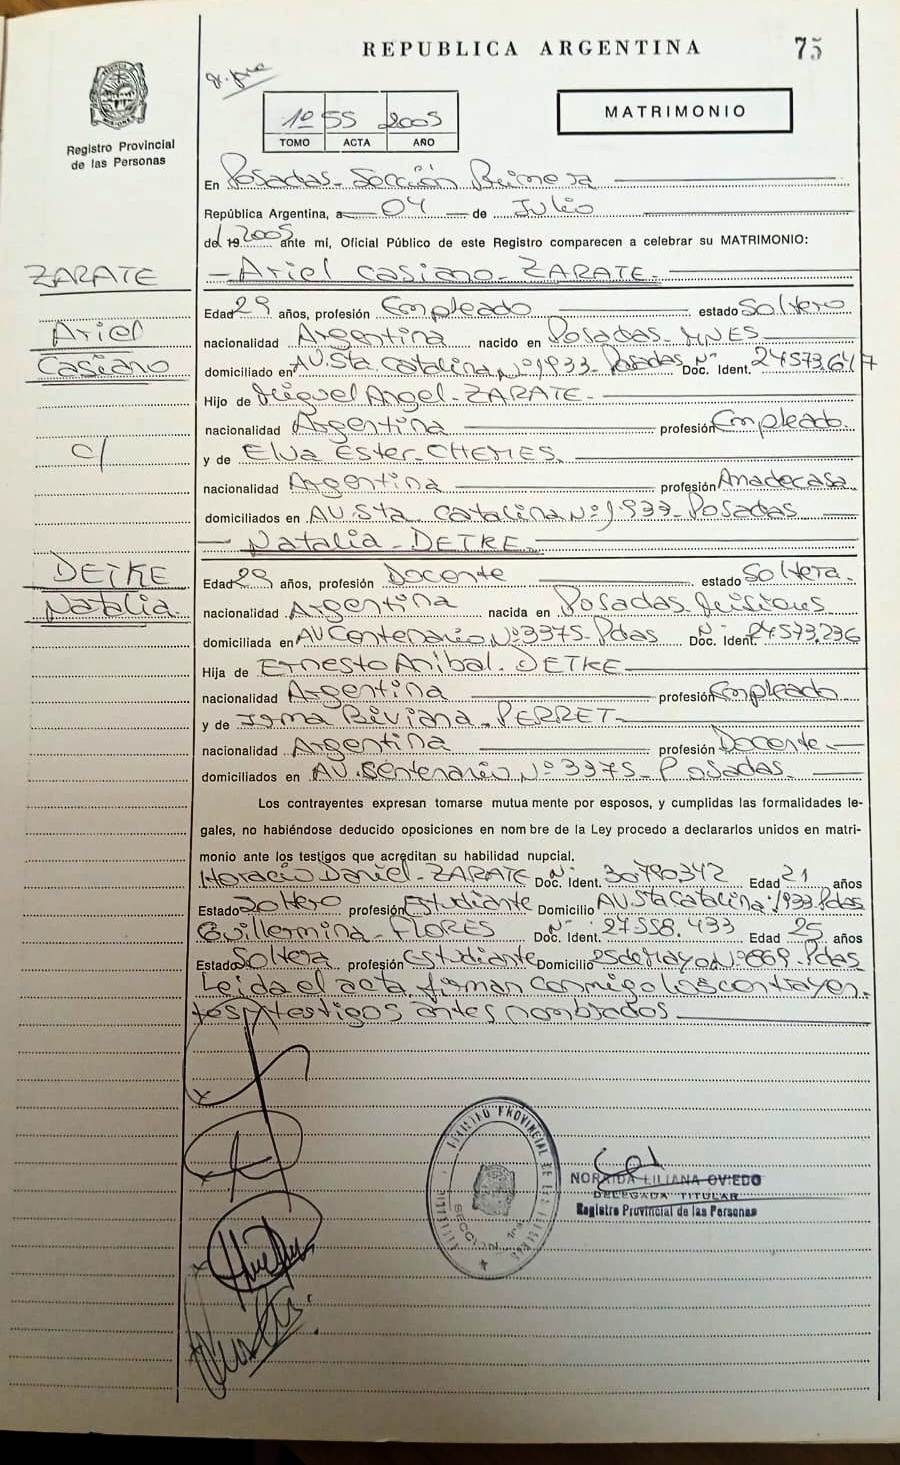 REPUBLICA ARGENTINA
75
Registro Provincial
de las Personas
1º 55 2005
TOMO ACTA AÑO
MATRIMONIO
En Posadas - Sección Primera
República Argentina, a 04 de Julio
del 19 2005 ante mí, Oficial Público de este Registro comparecen a celebrar su MATRIMONIO:
ZARATE
- Ariel Casiano - ZARATE -
Ariel
Casiano
Edad 29 años, profesión Empleado estado Soltero
nacionalidad Argentina nacido en Posadas - MNES
domiciliado en AV. Sta. Catalina Nº 1933 - Posadas Doc. Ident. Nº 24573.647
Hijo de Miguel Angel - ZARATE -
nacionalidad Argentina profesión Empleado
c/
y de Elva Ester - CHEMES
nacionalidad Argentina profesión Amadecasa
domiciliados en AV. Sta Catalina Nº 1933 - Posadas
- Natalia - DETKE
DETKE
Natalia
Edad 29 años, profesión Docente estado Soltera.
nacionalidad Argentina nacida en Posadas - Misiones
domiciliada en AV Centenario Nº 3375 - Pdas Doc. Ident. Nº 24573.236
Hija de Ernesto Anibal - DETKE
nacionalidad Argentina profesión Empleado
y de Irma Biviana - PERRET -
nacionalidad Argentina profesión Docente -
domiciliados en AV. Centenario Nº 3375 - Posadas -
Los contrayentes expresan tomarse mutua mente por esposos, y cumplidas las formalidades le-
gales, no habiéndose deducido oposiciones en nom bre de la Ley procedo a declararlos unidos en matri-
monio ante los testigos que acreditan su habilidad nupcial.
Horacio Daniel - ZARATE Doc. Ident. Nº 30790342 Edad 21 años
Estado Soltero profesión Estudiante Domicilio AV. Sta Catalina 1933 Pdas
Guillermina - FLORES Doc. Ident. Nº 27558.433 Edad 25 años
Estado Soltera profesión Estudiante Domicilio 25 de Mayo Nº 869 - Pdas
Leida el acta, firman conmigo los contrayen-
tes y testigos antes nombrados
REGISTRO PROVINCIAL DE LAS PERSONAS
SECCION 1ra
LILIANA OVIEDO
DELEGADA TITULAR
Registro Provincial de las Personas